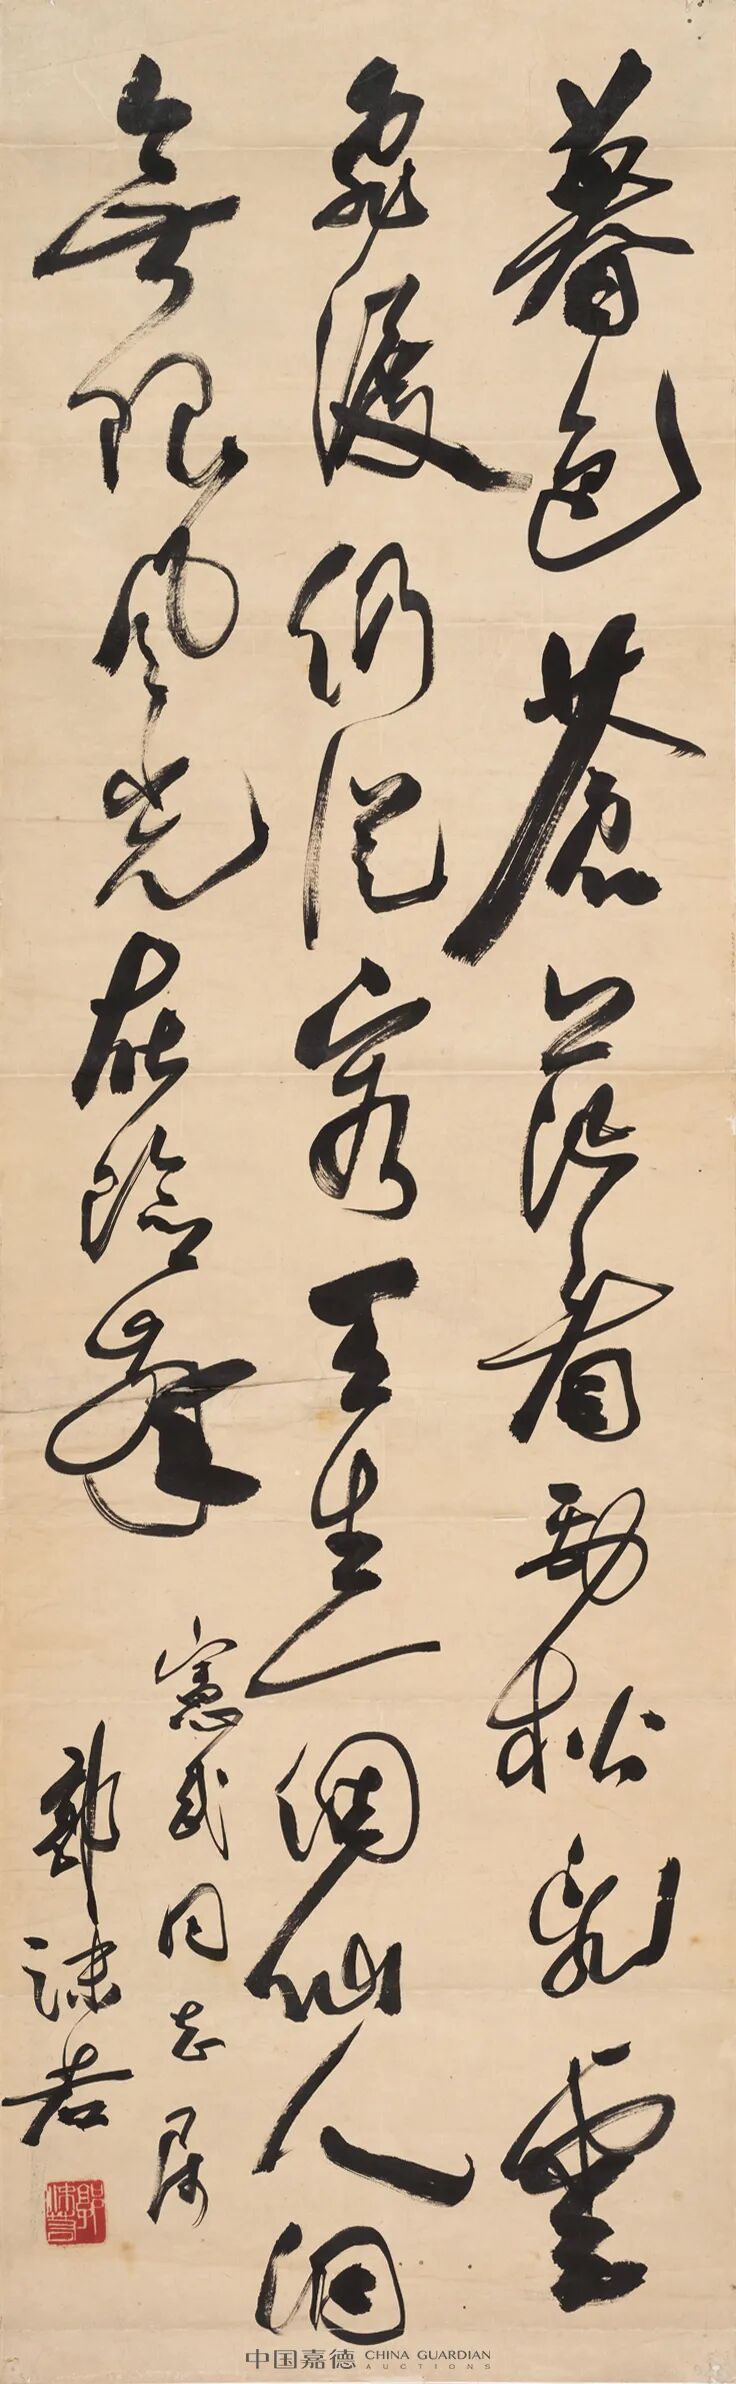 暮色蒼茫看勁松亂雲
飛渡仍從容天生一個仙人洞
無限風光在險峯
憲武同志属
郭沫若
郭沫若
中国嘉德 CHINA GUARDIAN
AUCTIONS